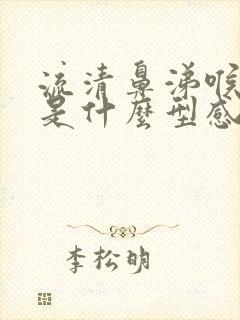 流清鼻涕喉
是什麼型感
李松明